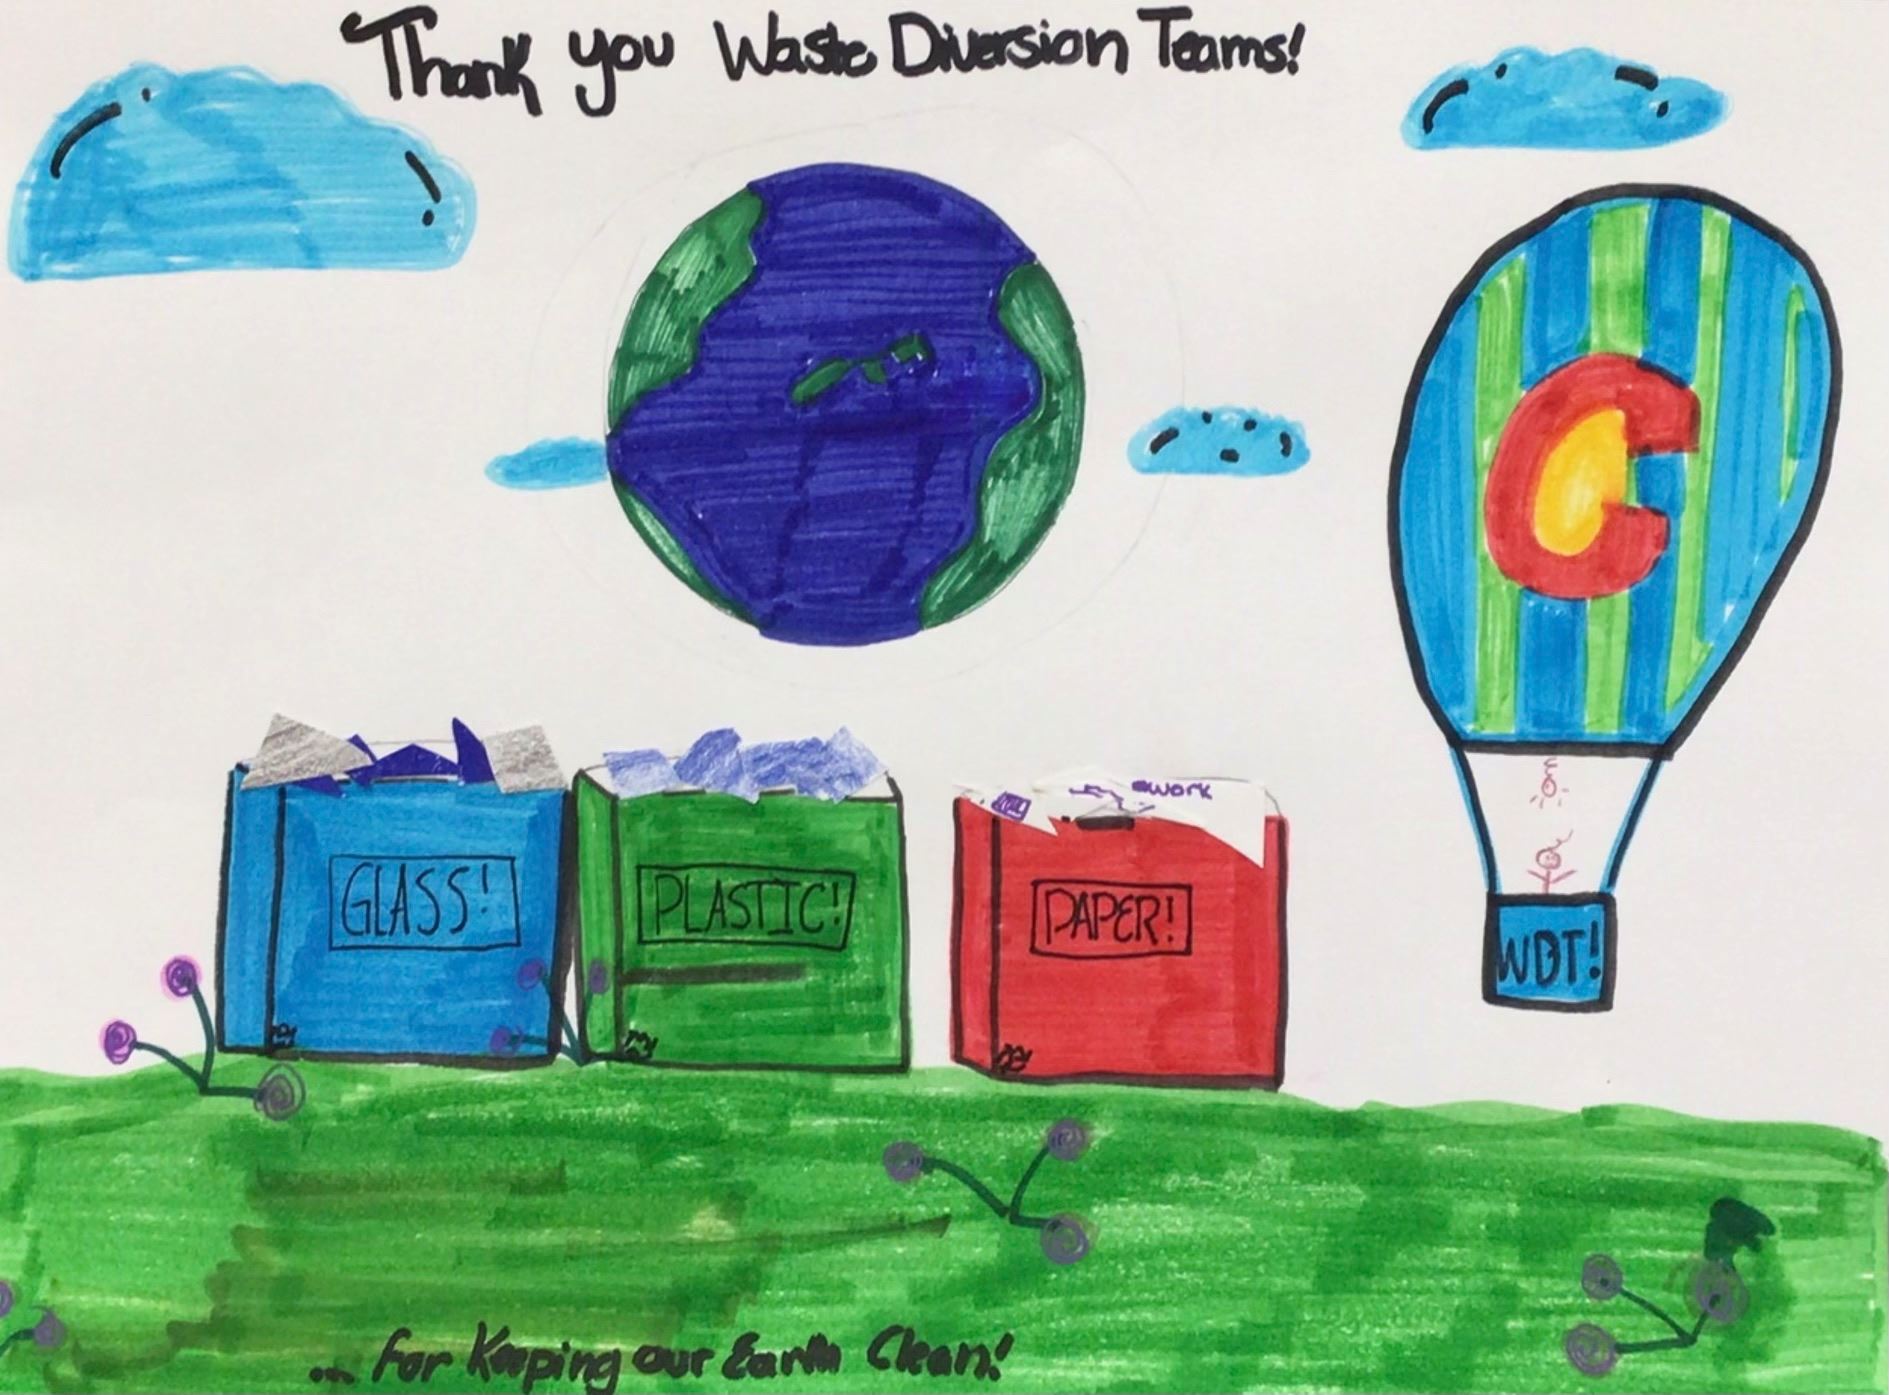 Thank you Waste Diversion Teams!
C
work
GLASS!
PLASTIC!
PAPER!
WDT!
... for Keeping our Earth Clean!